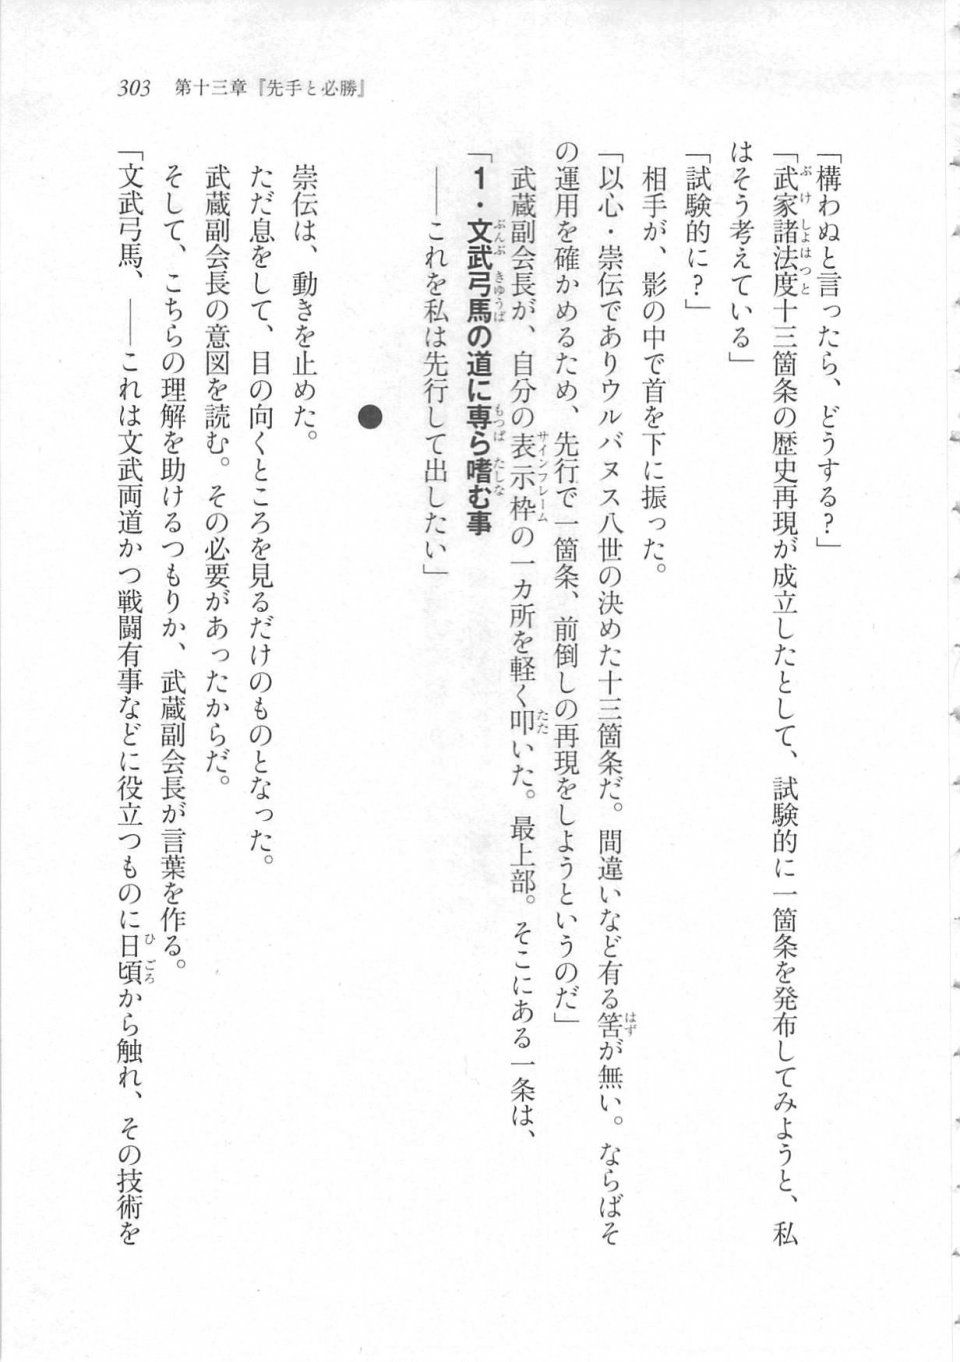 303　第十三章『先手と必勝』
「構わぬと言ったら、どうする？」
「武家諸法度十三箇条の歴史再現が成立したとして、試験的に一箇条を発布してみようと、私
はそう考えている」
「試験的に？」
　相手が、影の中で首を下に振った。
「以心・崇伝でありウルバヌス八世の決めた十三箇条だ。間違いなど有る筈が無い。ならばそ
の運用を確かめるため、先行で一箇条、前倒しの再現をしようというのだ」
　武蔵副会長が、自分の表示枠の一カ所を軽く叩いた。最上部。そこにある一条は、
「１・文武弓馬の道に専ら嗜む事
　――これを私は先行して出したい」
●
　崇伝は、動きを止めた。
　ただ息をして、目の向くところを見るだけのものとなった。
　武蔵副会長の意図を読む。その必要があったからだ。
　そして、こちらの理解を助けるつもりか、武蔵副会長が言葉を作る。
「文武弓馬、――これは文武両道かつ戦闘有事などに役立つものに日頃から触れ、その技術を